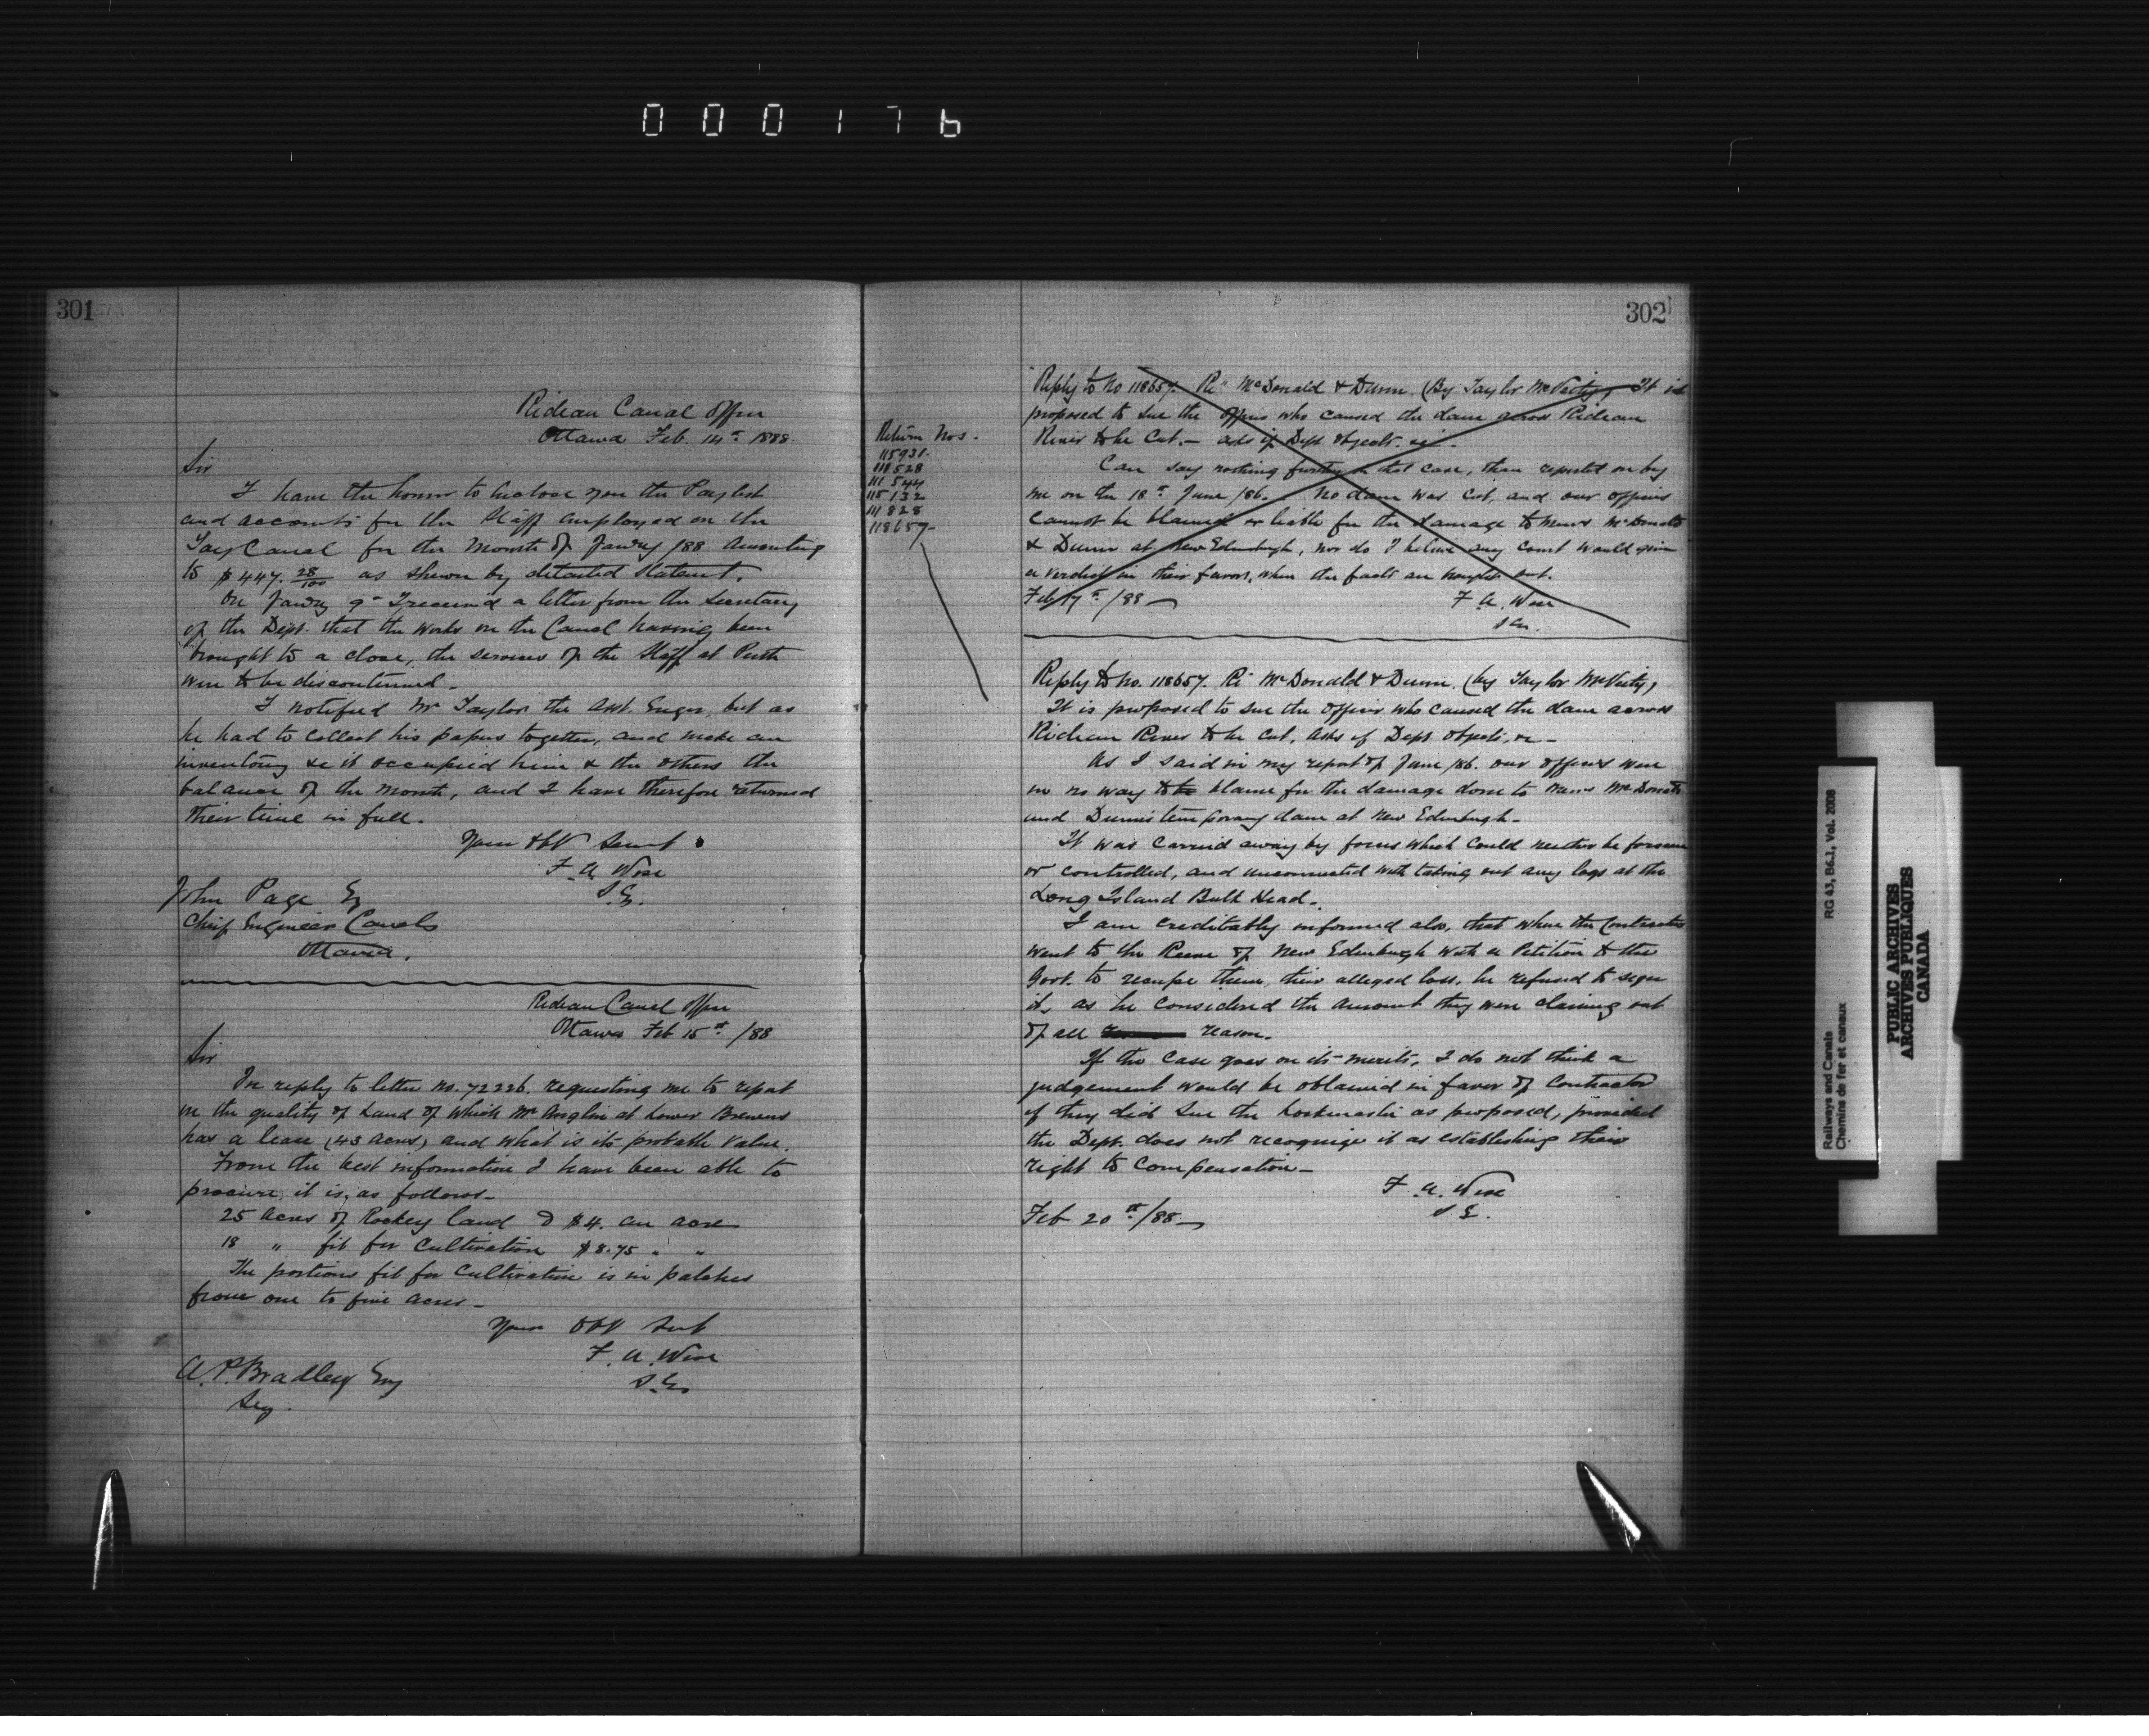 000176
301
Rideau Canal Office
Ottawa Feb. 14th 1888.
Sir
I have the honor to enclose you the Paylist
and accounts for the Staff employed on the
Tay Canal for the Month of Jany /88 amounting
to $447.28/100 as shewn by detailed Statemt.
On Jany 9th I received a letter from the Secretary
of the Dept. that the works on the Canal having been
brought to a close, the services of the Staff at Perth
were to be discontinued.
I notified Mr Taylor the Asst. Enger. but as
he had to collect his papers together, and make an
inventory &c it occupied him & the others the
balance of the month, and I have therefore returned
their time in full.
Your Obt Servt
F. A. Wise
S.E.
John Page Esq
Chief Engineer Canals
Ottawa.
Rideau Canal Office
Ottawa Feb 15th /88
Sir
In reply to letter No. 72226. requesting me to report
on the quality of Land of which Mr Anglin at Lower Brewers
has a lease (43 acres) and what is its probable value.
From the best information I have been able to
procure, it is, as follows-
25 acres of Rockey land @ $4. an acre
18 " fit for Cultivation $8.75 " "
The portions fit for Cultivation is in patches
from one to five acres-
Your Obt Servt
F. A. Wise
S.E.
A. P. Bradley Esq
Secy.
302
Return Nos.
115931.
118528
111544
115132
111828
118657-
Reply to No 118657. Re" McDonald & Dunn. (By Taylor McVeity) It is
proposed to sue the Officer who caused the dam across Rideau
River to be Cut.- asks if Dept objects. &c-
Can say nothing further in that case, than reported on by
me on the 18th June /86. No dam was Cut, and our officers
cannot be blamed or liable for the damage to Messrs McDonald
& Dunn at New Edinburgh, nor do I believe any Court would give
a verdict in their favor, when the facts are brought out.
Feb 17th /88-
F. A. Wise
S.E.
Reply to No. 118657. Re McDonald & Dunn. (by Taylor McVeity)
It is proposed to sue the Officer who caused the dam across
Rideau River to be Cut, asks if Dept. objects, &c-
As I said in my report of June /86. our officers were
in no way to blame for the damage done to Messrs McDonald
and Dunn's temporary dam at New Edinburgh-
It was Carried away by forces which could neither be foreseen
or controlled, and unconnected with taking out any logs at the
Long Island Bulk Head.
I am creditably informed also, that when the Contractors
went to the Reeve of New Edinburgh with a Petition to the
Govt. to recoupe them, their alleged loss, he refused to sign
it, as he considered the amount they were claiming out
of all reason.
If the Case goes on its merits, I do not think a
judgement would be obtained in favor of Contractor
if they did sue the Lockmaster as proposed, provided
the Dept. does not recognize it as establishing their
right to Compensation-
F. A. Wise
S E.
Feb 20th /88-
Railways and Canals
Chemins de fer et canaux
RG 43, B6.1, Vol. 2008
PUBLIC ARCHIVES
ARCHIVES PUBLIQUES
CANADA